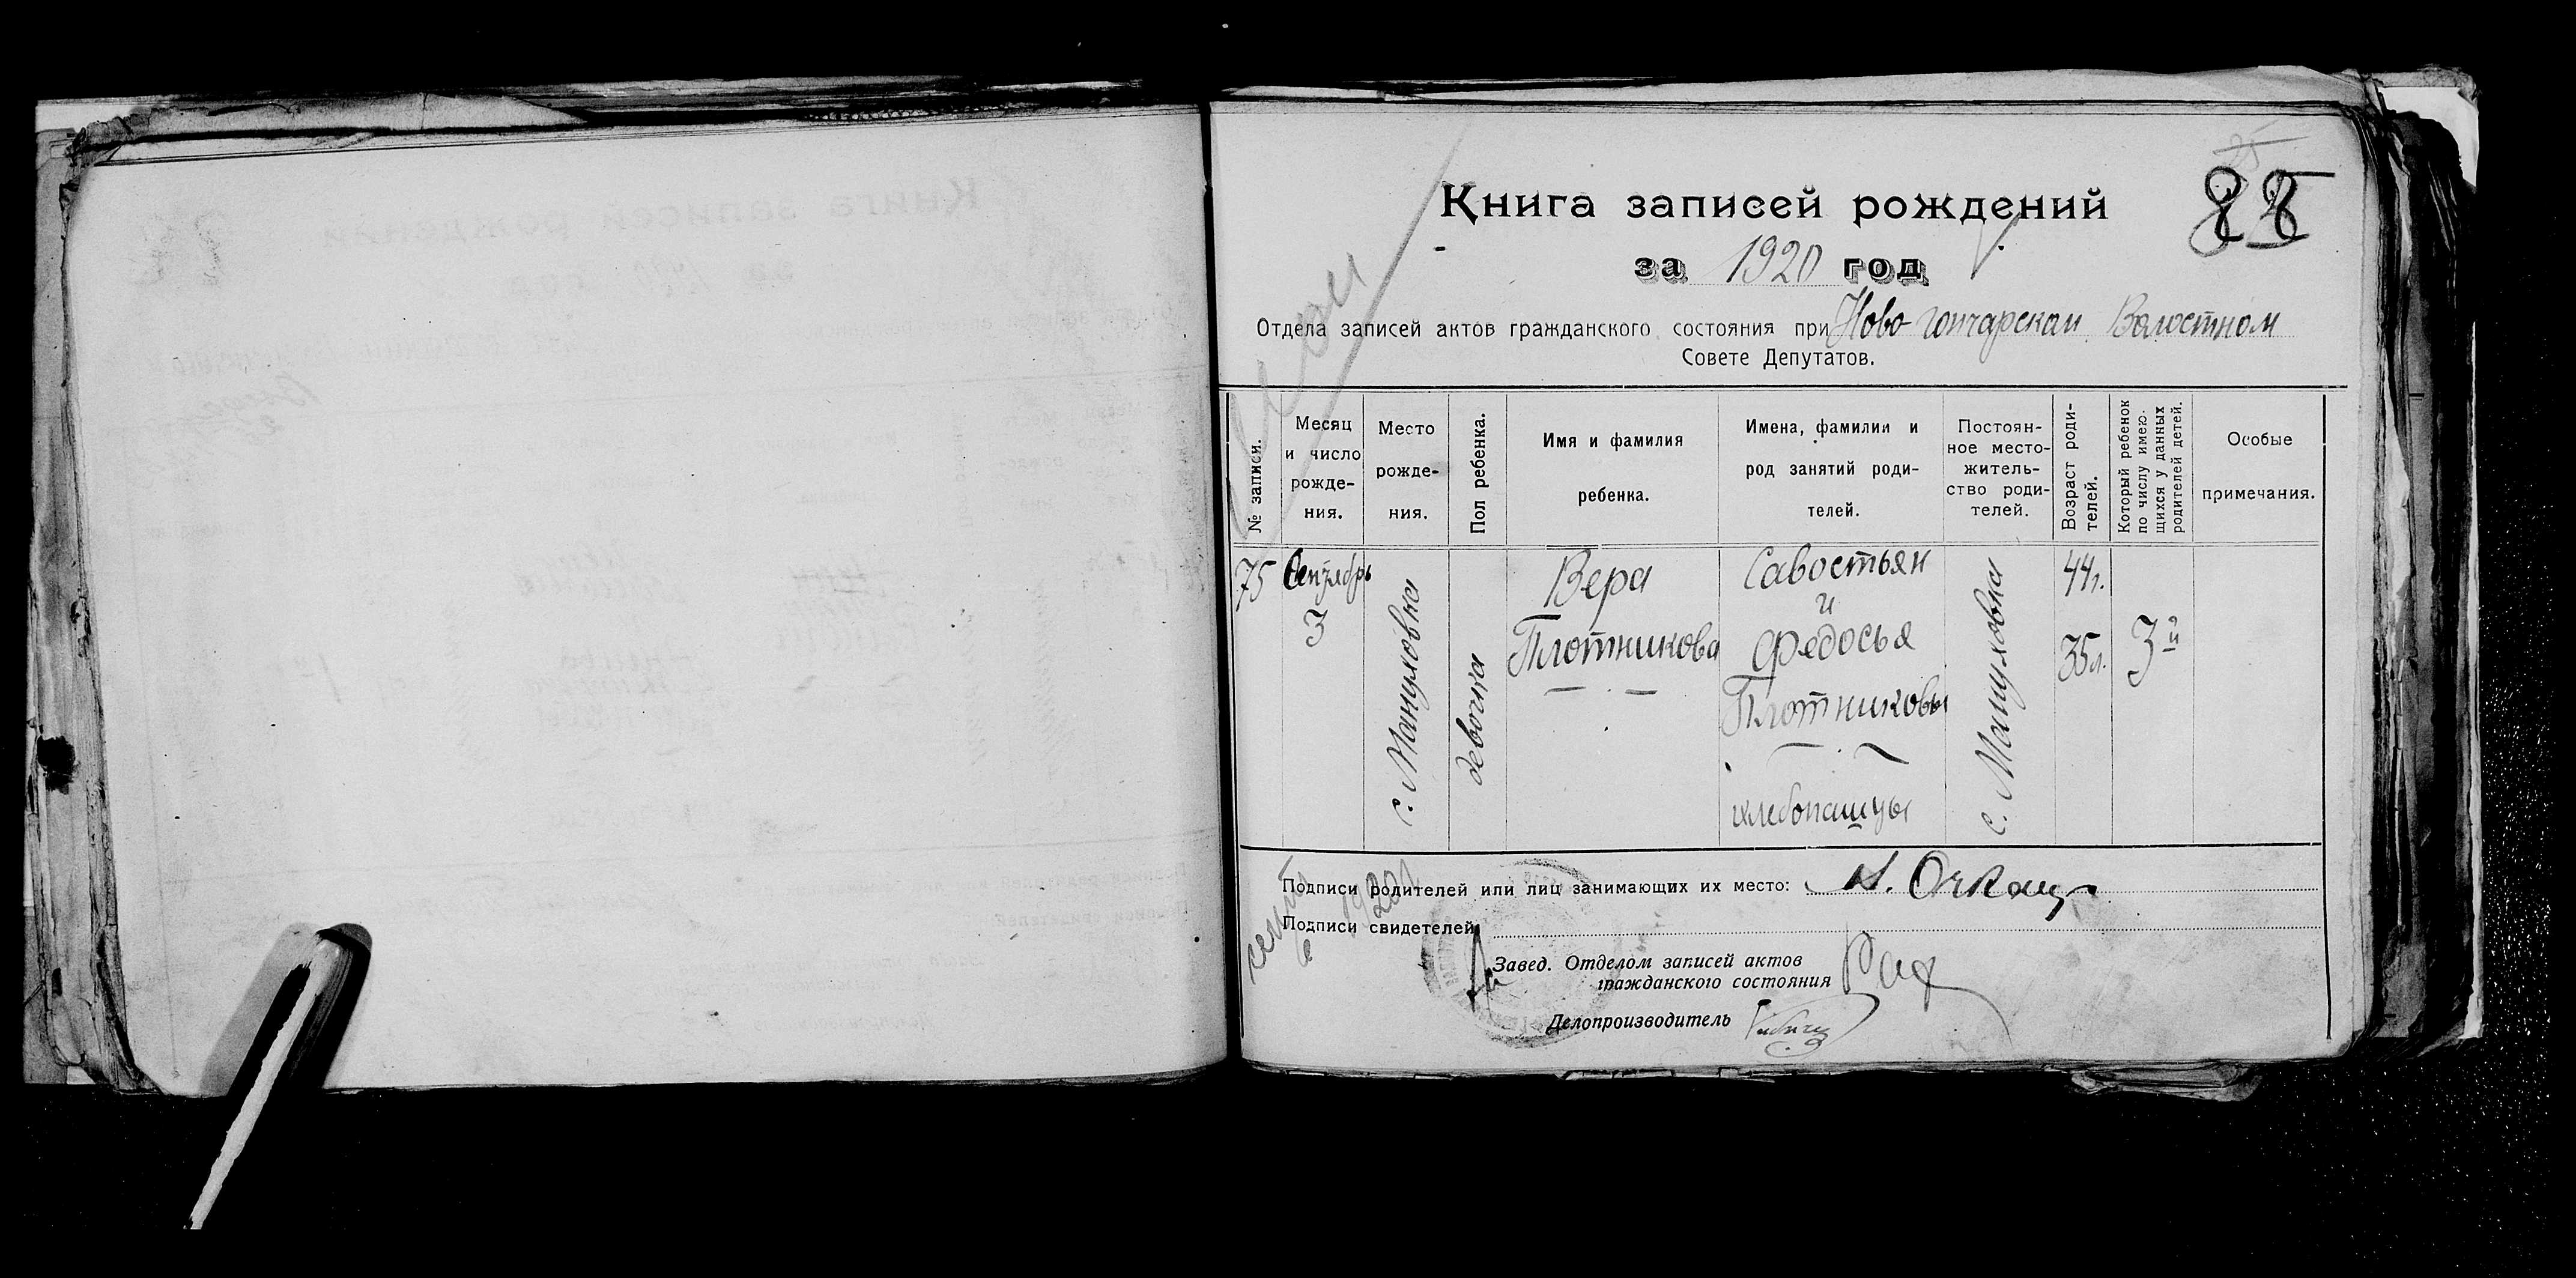 88
Книга записей рождений
за 1920 год
Отдела записей актов гражданского состояния при Ново гончарском Волостном
Совете Депутатов.
№ записи.
Месяц
и число
рожде-
ния.
Место
рожде-
ния.
Пол ребенка.
Имя и фамилия
ребенка.
Имена, фамилии и
род занятий роди-
телей.
Постоян-
ное место-
житель-
ство роди-
телей.
Возраст роди-
телей.
Который ребенок
по числу имею-
щихся у данных
родителей детей.
Особые
примечания.
75
Сентябрь
3
с. Мануховка
девочка
Вера
Плотникова
Савостьян
и
Федосья
Плотниковы
хлебопашцы
с. Мануховка
44 г.
35 л.
3й
Подписи родителей или лиц занимающих их место:
Подписи свидетелей
сент 1920 г
6
Завед. Отделом записей актов
гражданского состояния
Делопроизводитель